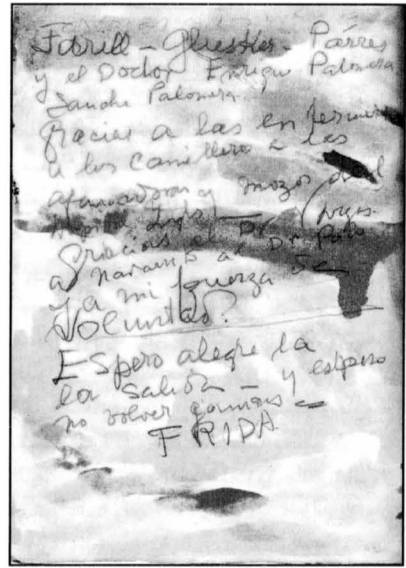 Farill – Glusker – Párres
y el Doctor Enrique Palomera
Sanche Palomera
gracias a las enfermeras
a los camilleros a las
afanadoras y mozos del
Gracias al Dr
a Navarro al Dr Polo
y a mi fuerza de
voluntad.
Espero alegre la
la salida – y espero
no volver jamás –
FRIDA